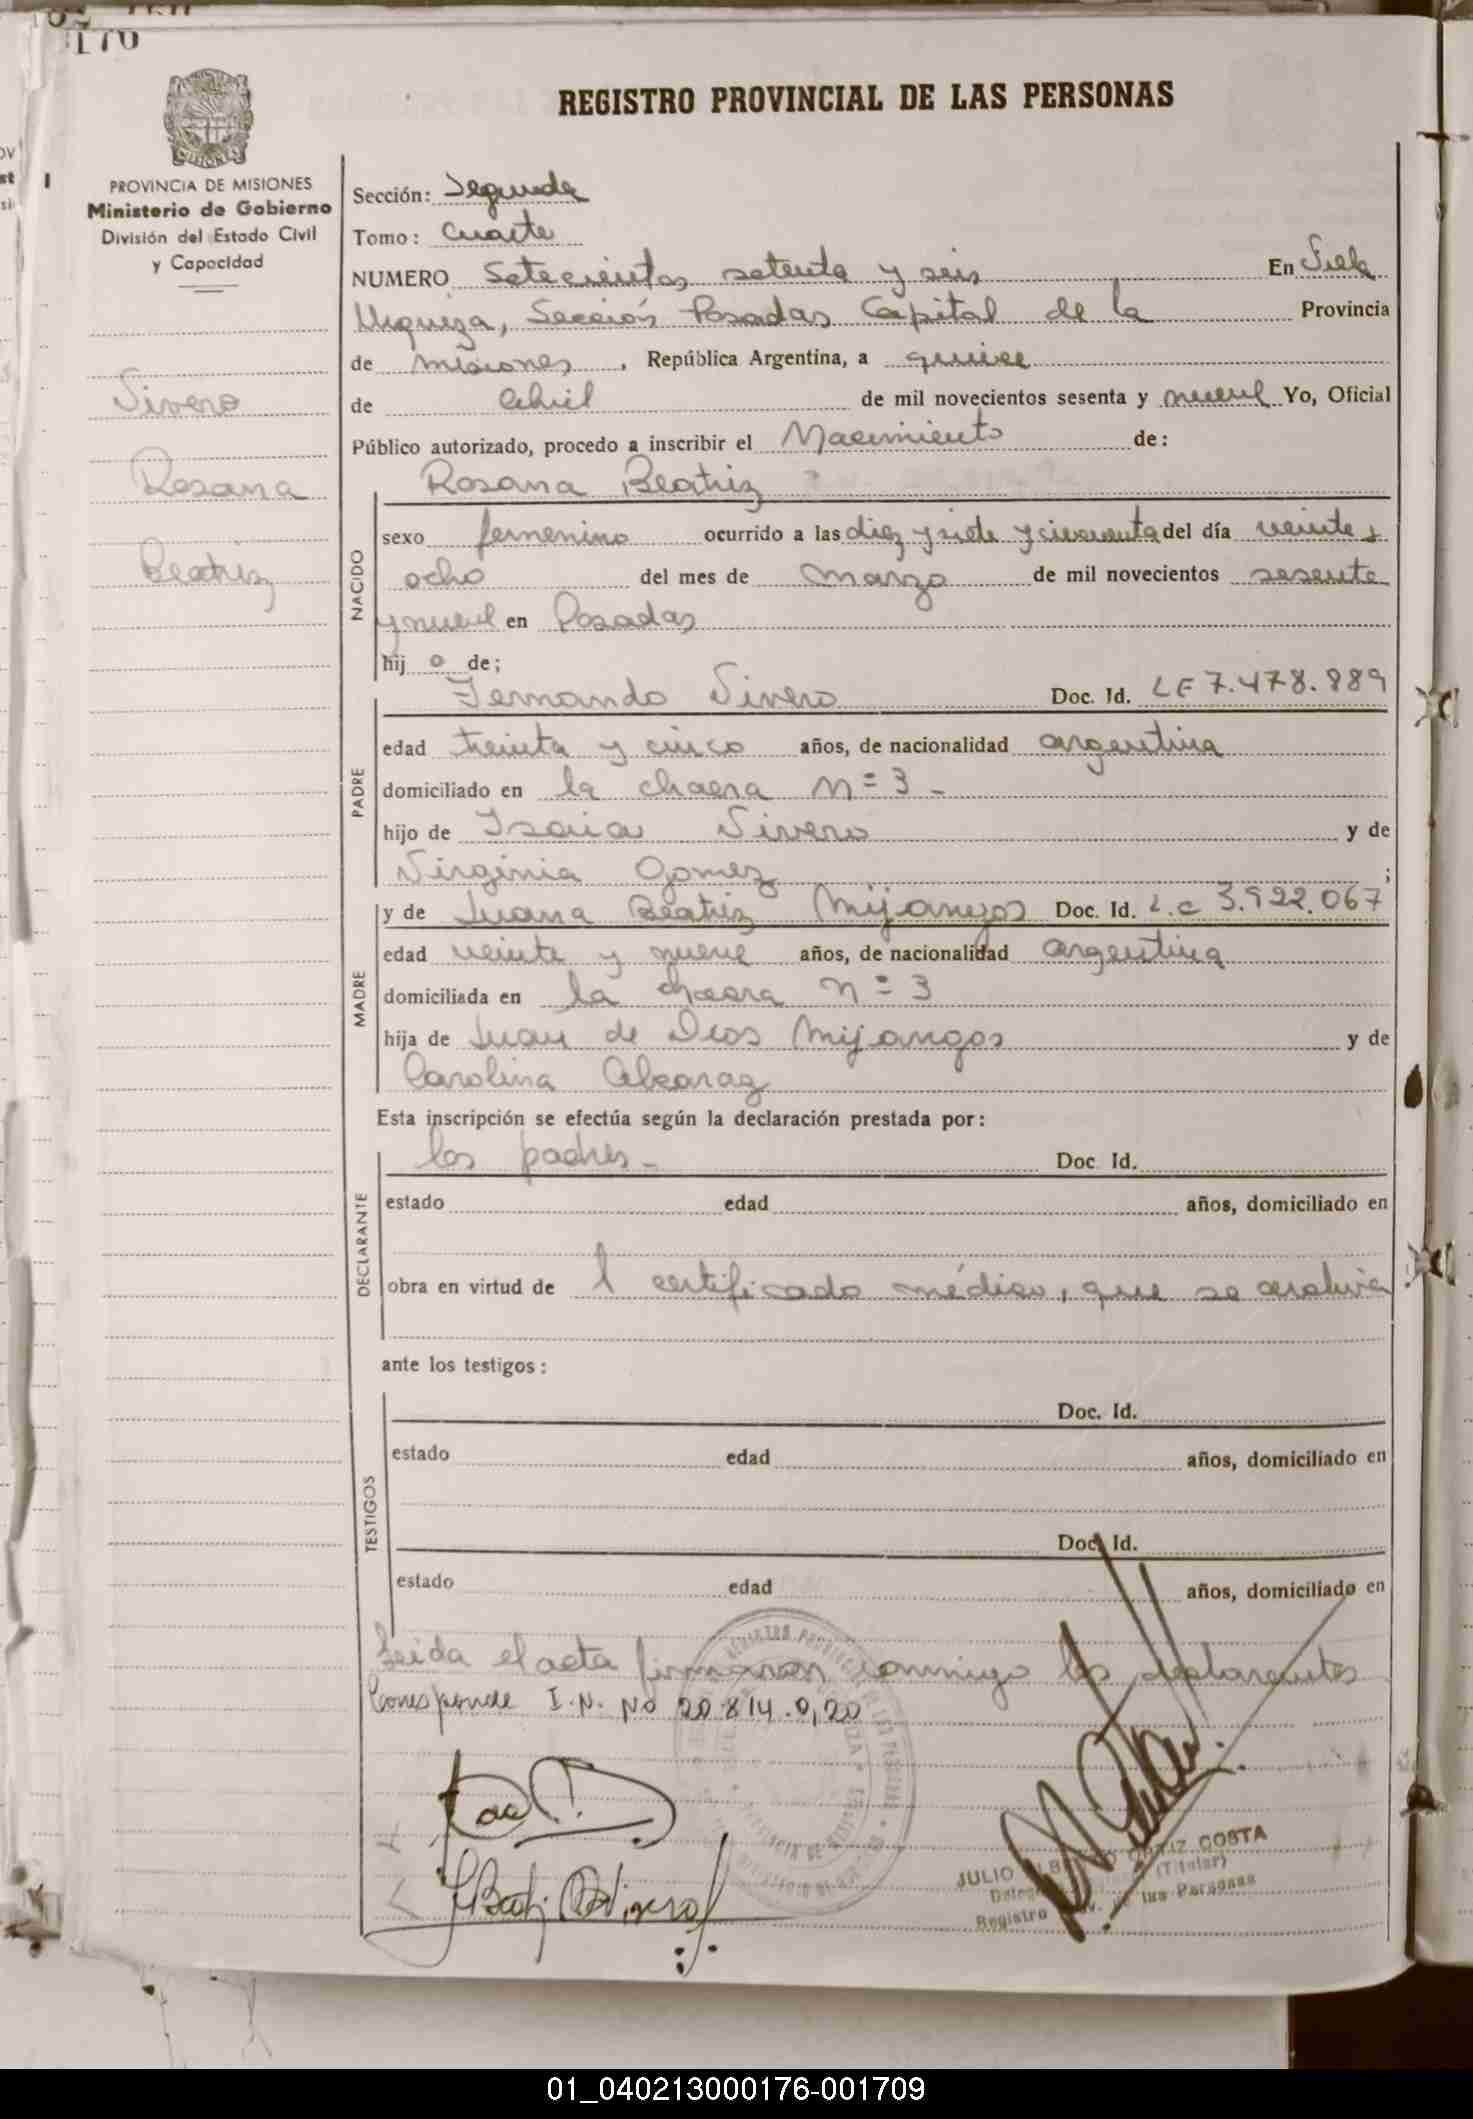 176
REGISTRO PROVINCIAL DE LAS PERSONAS
PROVINCIA DE MISIONES
Ministerio de Gobierno
División del Estado Civil
y Capacidad
Sivero
Rosana
Beatriz
Sección: Segunda
Tomo: Cuarto
NUMERO Setecientos setenta y seis En Villa
Urquiza, Sección Posadas Capital de la Provincia
de misiones, República Argentina, a quince
de abril de mil novecientos sesenta y nueve Yo, Oficial
Público autorizado, procedo a inscribir el Nacimiento de:
Rosana Beatriz
NACIDO
sexo femenino ocurrido a las diez y siete y cincuenta del día veinte y
ocho del mes de marzo de mil novecientos sesenta
y nueve en Posadas
hij o de;
PADRE
Fernando Sivero Doc. Id. LE 7.478.889
edad treinta y cinco años, de nacionalidad argentina
domiciliado en la chacra n=3-
hijo de Isaia Sivero y de
Virginia Gomez ;
MADRE
y de Juana Beatriz Mijangos Doc. Id. L.C 3.922.067
edad veinte y nueve años, de nacionalidad argentina
domiciliada en la chacra n=3
hija de Juan de Dios Mijangos y de
Carolina Alcaraz
Esta inscripción se efectúa según la declaración prestada por:
DECLARANTE
los padres- Doc. Id.
estado edad años, domiciliado en
obra en virtud de l certificado médico, que se archiva
ante los testigos:
TESTIGOS
Doc. Id.
estado edad años, domiciliado en
Doc. Id.
estado edad años, domiciliado en
Leida el acta firmaran conmigo los declarantes
Corresponde I.N. No 20.814.0,20
JULIO ALBERTO ORTIZ COSTA
(Titular)
Registro las Personas
01_040213000176-001709